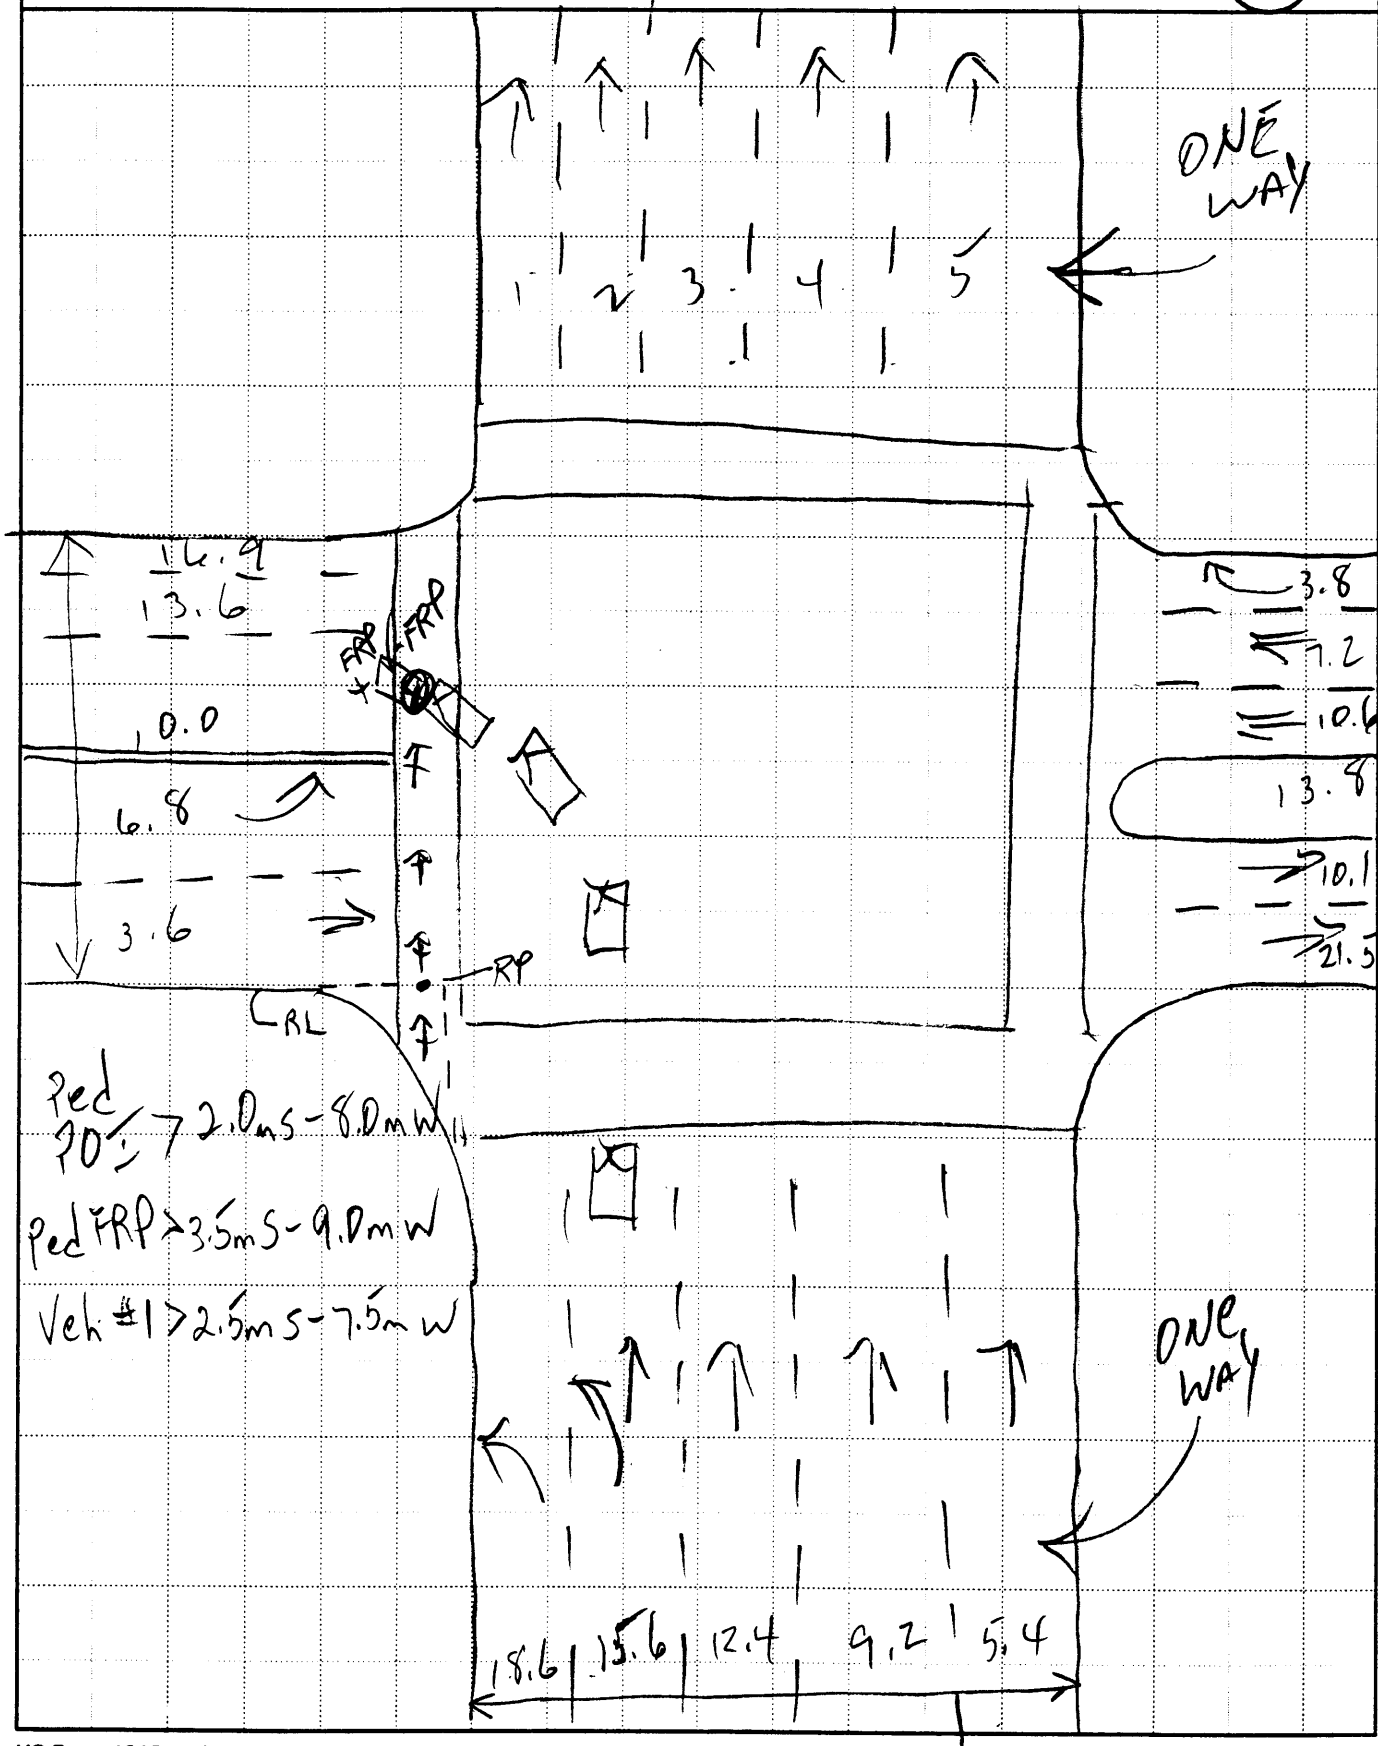 ONE
WAY
1 2 3 4 5
16.9
13.6
10.0
6.8
3.6
FRP
FRP
3.8
7.2
10.6
13.8
10.1
21.5
RP
RL
Ped
POI > 2.0mS - 8.0mW
Ped FRP > 3.5mS - 9.0mW
Veh #1 > 2.5mS - 7.5mW
ONE
WAY
18.6 15.6 12.4 9.2 5.4